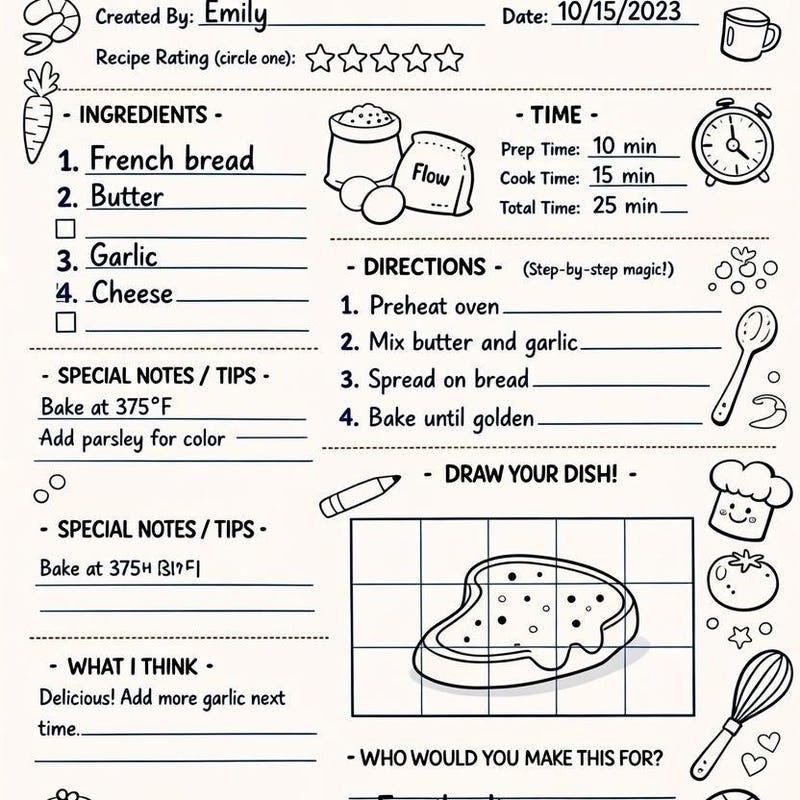 Created By: Emily
Date: 10/15/2023
Recipe Rating (circle one):
- INGREDIENTS -
1. French bread
2. Butter
3. Garlic
4. Cheese
Flow
- TIME -
Prep Time: 10 min
Cook Time: 15 min
Total Time: 25 min
- DIRECTIONS - (Step-by-step magic!)
1. Preheat oven
2. Mix butter and garlic
3. Spread on bread
4. Bake until golden
- SPECIAL NOTES / TIPS -
Bake at 375°F
Add parsley for color
- SPECIAL NOTES / TIPS -
Bake at 375
- WHAT I THINK -
Delicious! Add more garlic next
time.
- DRAW YOUR DISH! -
- WHO WOULD YOU MAKE THIS FOR?